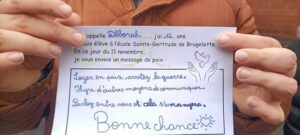 m'appelle Déborah, j'ai 12 ans
suis élève à l'école Sainte-Gertrude de Brugelette.
En ce jour du 11 novembre,
je vous envoie un message de paix
Loger en paix, arrêtez la guerre.
Il y a d'autres moyens de communiquer.
Parlez entre vous et cela s'arrangera.
Bonne chance